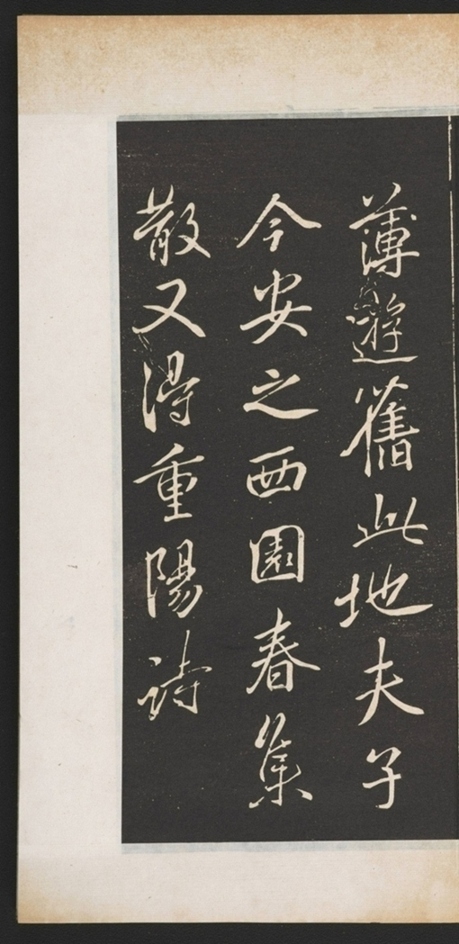 薄遊舊此地夫子
今安之西園春集
散又得重陽詩